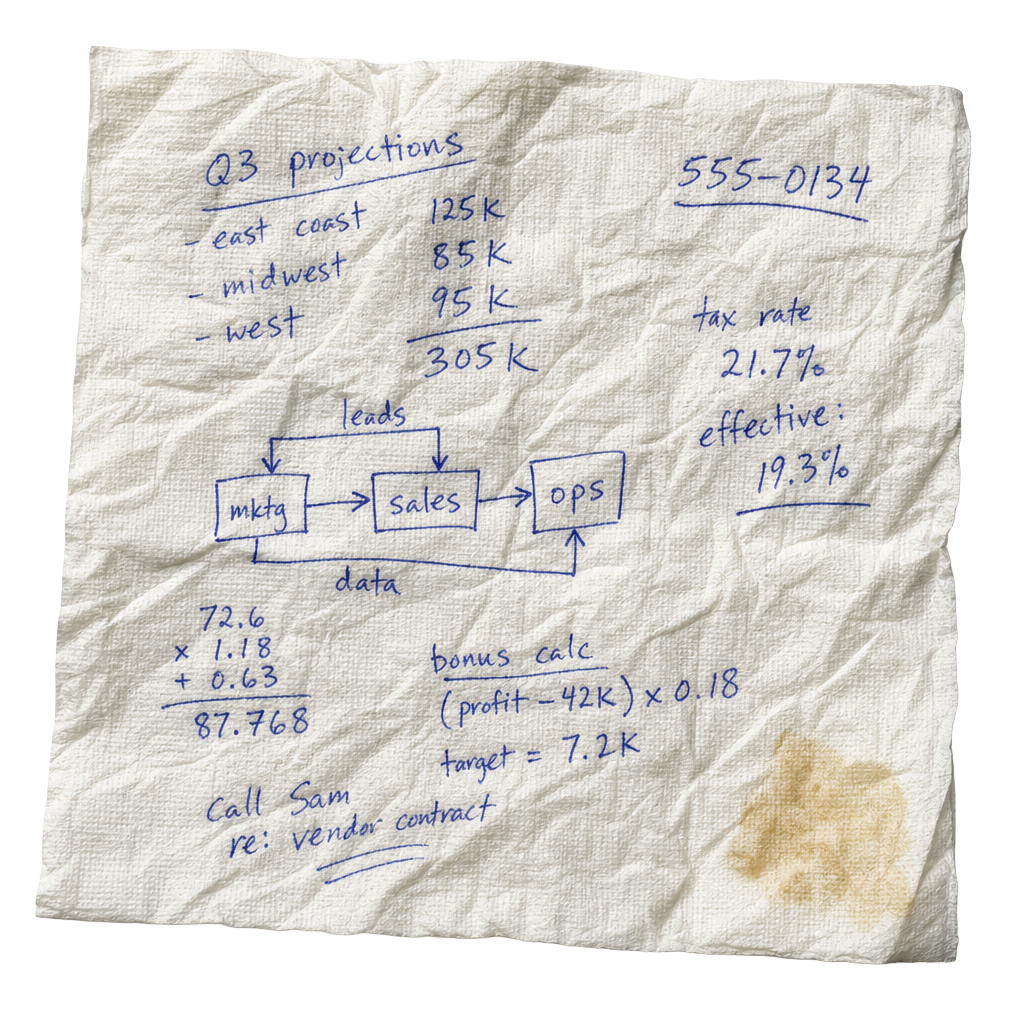 Q3 projections
- east coast 125K
- midwest 85K
- west 95K
305K
555-0134
tax rate
21.7%
effective:
19.3%
leads
mktg sales ops
data
72.6
x 1.18
+ 0.63
87.768
bonus calc
(profit - 42K) x 0.18
target = 7.2K
Call Sam
re: vendor contract